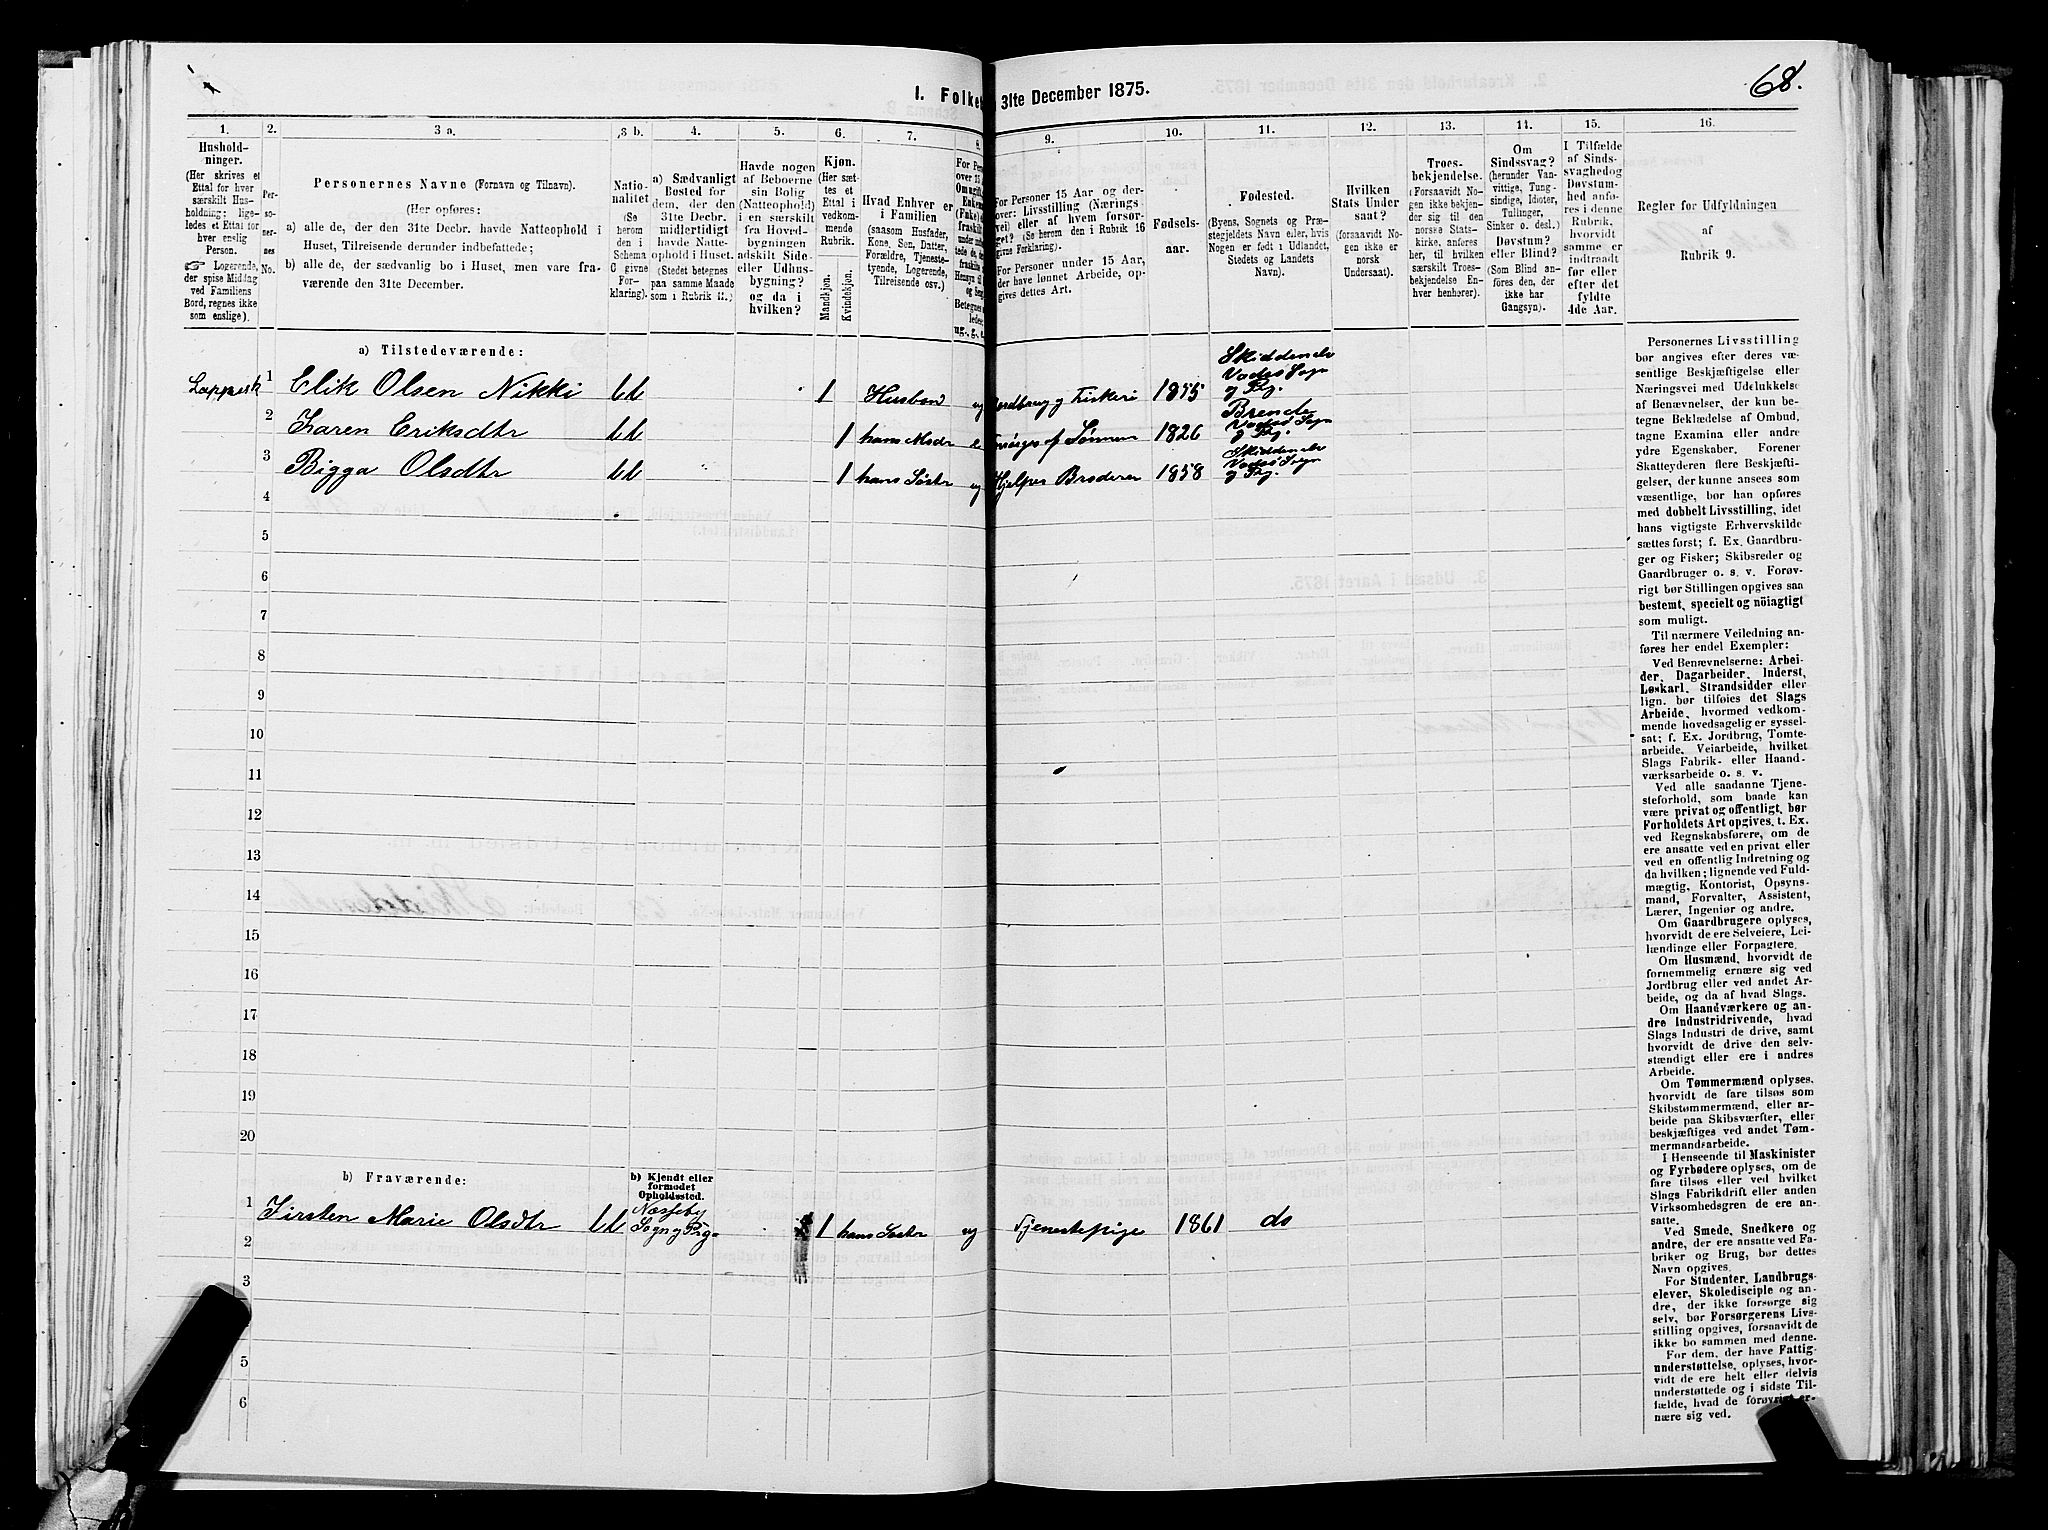 68.
1. Folket 31te December 1875.
1.
Hushold-
ninger.
(Her skrives et
Ettal for hver
særskilt Hus-
holdning; lige-
ledes et Ettal for
hver enslig
Person.
☞ Logerende,
der spise Middag
ved Familiens
Bord, regnes ikke
som enslige).
2.
Per-
so-
ner-
nes
No.
3 a.
Personernes Navne (Fornavn og Tilnavn).
(Her opføres:
a) alle de, der den 31te Decbr. havde Natteophold i
Huset, Tilreisende derunder indbefattede;
b) alle de, der sædvanlig bo i Huset, men vare fra-
værende den 31te December.
3 b.
Natio-
nalitet
(Se
herom
den i
Schema
C givne
For-
klaring).
4.
a) Sædvanligt
Bosted for
dem, der den
31te Decbr.
midlertidigt
havde Natte-
ophold i Huset.
(Stedet betegnes
paa samme Maade
som i Rubrik 11.)
5.
Havde nogen
af Beboerne
sin Bolig
(Natteophold)
i en særskilt
fra Hoved-
bygningen
adskilt Side-
eller Udhus-
bygning?
og da i
hvilken?
6.
Kjøn.
(Her sæt-
tes et
Ettal i
vedkom-
mende
Rubrik.
Mandkjøn.
Kvindekjøn.
7.
Hvad Enhver er
i Familien
(saasom Husfader,
Kone, Søn, Datter,
Forældre, Tjeneste-
tyende, Logerende,
Tilreisende osv.)
8.
9.
For Personer 15 Aar og der-
over: Livsstilling (Nærings
vei) eller af hvem forsør-
get? (Se herom den i Rubrik 16
givne Forklaring).
For Personer under 15 Aar,
der have lønnet Arbeide, op-
gives dettes Art.
10.
Fødsels-
aar.
11.
Fødested.
(Byens, Sognets og Præ-
stegjeldets Navn eller, hvis
Nogen er født i Udlandet,
Stedets og Landets
Navn).
12.
Hvilken
Stats Under
saat?
(forsaavidt No-
gen ikke er
norsk
Undersaat).
13.
Troes-
bekjendelse.
(Forsaavidt No-
gen ikke bekjen-
der sig til den
norske Stats-
kirke, anføres
her, til hvilken
særskilt Troes-
bekjendelse En-
hver henhører).
14.
Om
Sindssvag?
(herunder Van-
vittige, Tung-
sindige, Idioter,
Tullinger,
Sinker o. desl.)
Døvstum?
eller Blind?
(Som Blind an-
føres den, der
ikke har
Gangsyn).
15.
I Tilfælde
af Sinds-
svaghed og
Døvstum-
hed anfø-
res i denne
Rubrik,
hvorvidt
samme er
indtraadt
før eller
efter det
fyldte
4de Aar.
16.
Regler for Udfyldningen
af
Rubrik 9.
a) Tilstedeværende:
Lappesk 1 Elik Olsen Nikki 1 Husbond ug Jordbrug og Fiskeri 1855 Skiddenelv Vadsø Sogn og Prg.
2 Karen Eriksdtr 1 hans Modr e Forsørges af Sønnen 1826 Vadsø Sogn og Prg.
3 Bigga Olsdtr 1 hans Søstr ug Hjelper Broderen 1858 Skiddenelv Vadsø Sogn og Prg.
4
5
6
7
8
9
10
11
12
13
14
15
16
17
18
19
20
b) Fraværende:
b) Kjendt eller
formodet
Opholdssted.
1 Kirsten Marie Olsdtr Næsseby Sogn og Prg. 1 hans Søster ug Tjenestepige 1861 do
2
3
5
6
Personernes Livsstilling
bør angives efter deres væ-
sentlige Beskjæftigelse eller
Næringsvei med Udelukkelse
af Benævnelser, der kun be-
tegne Beklædelse af Ombud,
tagne Examina eller andre
ydre Egenskaber. Forener
Skatteyderen flere Beskjæfti-
gelser, der kunne ansees som
væsentlige, bør han opføres
med dobbelt Livsstilling, idet
hans vigtigste Erhvervskilde
sættes først; f. Ex. Gaardbru-
ger og Fisker; Skibsreder og
Gaardbruger o. s. v. Forøv-
rigt bør Stillingen opgives saa
bestemt, specielt og nöiagtigt
som muligt.
Til nærmere Veiledning an-
føres her endel Exempler:
Ved Benævnelserne: Arbei-
der, Dagarbeider, Inderst,
Løskarl, Strandsidder eller
lign. bør tilføies det Slags
Arbeide, hvormed vedkom-
mende hovedsagelig er syssel-
sat; f. Ex. Jordbrug, Tomte-
arbeide, Veiarbeide, hvilket
Slags Fabrik- eller Haand-
værksarbeide o. s. v.
Ved alle saadanne Tjene-
steforhold, som baade kan
være privat og offentligt, bør
Forholdets Art opgives, t. Ex.
ved Regnskabsførere, om de
ere ansatte ved en privat eller
ved en offentlig Indretning og
da hvilken; lignende ved Fuld-
mægtig, Kontorist, Opsyns-
mand, Forvalter, Assistent,
Lærer, Ingeniør og andre.
Om Gaardbrugere oplyses,
hvorvidt de ere Selveiere, Lei-
lændinge eller Forpagtere.
Om Husmænd, hvorvidt de
fornemmelig ernære sig ved
Jordbrug eller ved andet Ar-
beide, og da af hvad Slags.
Om Haandværkere og an-
dre Industridrivende, hvad
Slags Industri de drive, samt
hvorvidt de drive den selv-
stændigt eller ere i andres
Arbeide.
Om Tømmermænd oplyses,
hvorvidt de fare tilsøs som
Skibstømmermænd, eller ar-
beide paa Skibsværfter, eller
beskjæftiges ved andet Tøm-
mermandsarbeide.
I Henseende til Maskinister
og Fyrbødere oplyses, om de
fare tilsøs eller ved hvilket
Slags Fabrikdrift eller anden
Virksomhedsgren de ere an-
satte.
Ved Smede, Snedkere og
andre, der ere ansatte ved Fa-
briker og Brug, bør dettes
Navn opgives.
For Studenter, Landbrugs-
elever, Skoledisciple og an-
dre, der ikke forsørge sig
selv, bør Forsørgerens Livs-
stilling opgives, forsaavidt de
ikke bo sammen med denne.
For dem, der have Fattig-
understøttelse, oplyses, hvor-
vidt de ere helt eller delvis
understøttede og i sidste Til-
fælde, hvad de forøvrigt er-
nære sig ved.